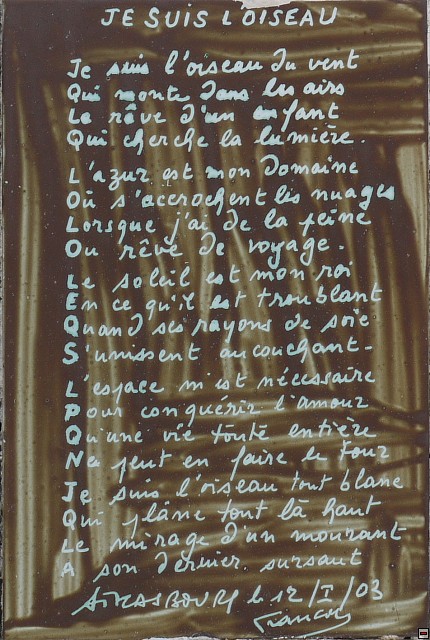 JE SUIS L'OISEAU
Je suis l'oiseau du vent
Qui monte dans les airs
Le rêve d'un enfant
Qui cherche la lumière.
L'azur est mon domaine
Où s'accrochent les nuages
Lorsque j'ai de la peine
Ou rêve de voyage.
Le soleil est mon roi
En ce qu'il est troublant
Quand ses rayons de soie
S'unissent au couchant.
L'espace m'est nécessaire
Pour conquérir l'amour
Qu'une vie toute entière
Ne peut en faire le tour
Je suis l'oiseau tout blanc
Qui plane tout là haut
Le mirage d'un mourant
A son dernier sursaut
STRASBOURG le 12/I/03